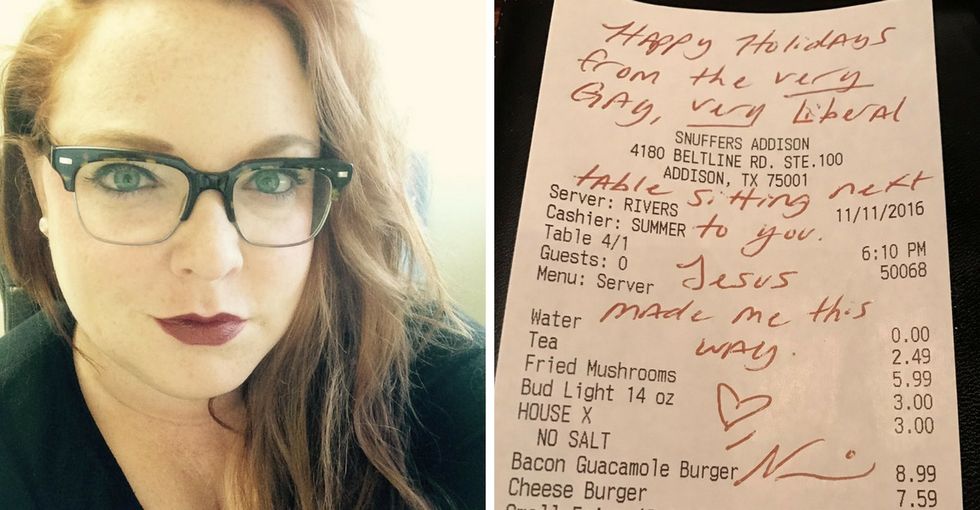 Happy Holidays
from the very
Gay, very Liberal
SNUFFERS ADDISON
4180 BELTLINE RD. STE.100
ADDISON, TX 75001
table sitting next
Server: RIVERS 11/11/2016
Cashier: SUMMER to you.
Table 4/1 6:10 PM
Guests: 0 50068
Menu: Server Jesus
made me this
Water 0.00
way.
Tea 2.49
Fried Mushrooms 5.99
Bud Light 14 oz 3.00
HOUSE X 3.00
NO SALT
Bacon Guacamole Burger 8.99
Cheese Burger 7.59